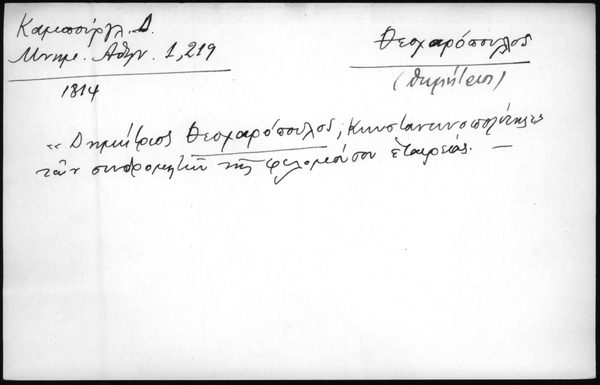 Καμπούργλ. Δ.
Μνημ. Αθην. 1,219
1814
Θεοχαρόπουλος
(Δημήτριος)
"Δημήτριος Θεοχαρόπουλος, Κωνσταντινοπολίτης
τῶν συνδρομητῶν τῆς φιλομούσου ἑταιρείας. —